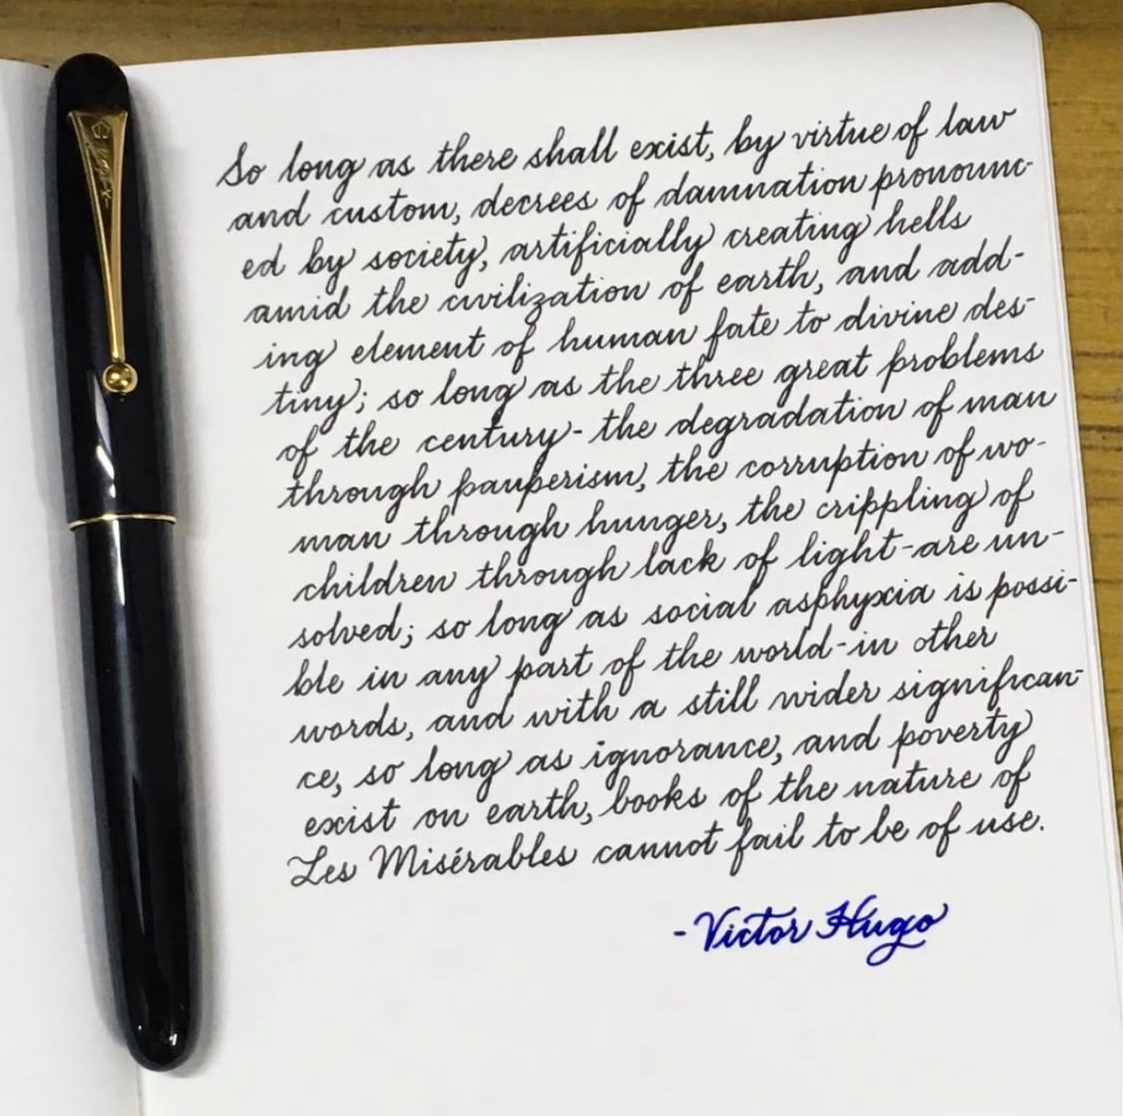 So long as there shall exist, by virtue of law
and custom, decrees of damnation pronounc-
ed by society, artificially creating hells
amid the civilization of earth, and add-
ing element of human fate to divine des-
tiny; so long as the three great problems
of the century - the degradation of man
through pauperism, the corruption of wo-
man through hunger, the crippling of
children through lack of light - are un-
solved; so long as social asphyxia is possi-
ble in any part of the world - in other
words, and with a still wider significan-
ce, so long as ignorance, and poverty
exist on earth, books of the nature of
Les Misérables cannot fail to be of use.
- Victor Hugo